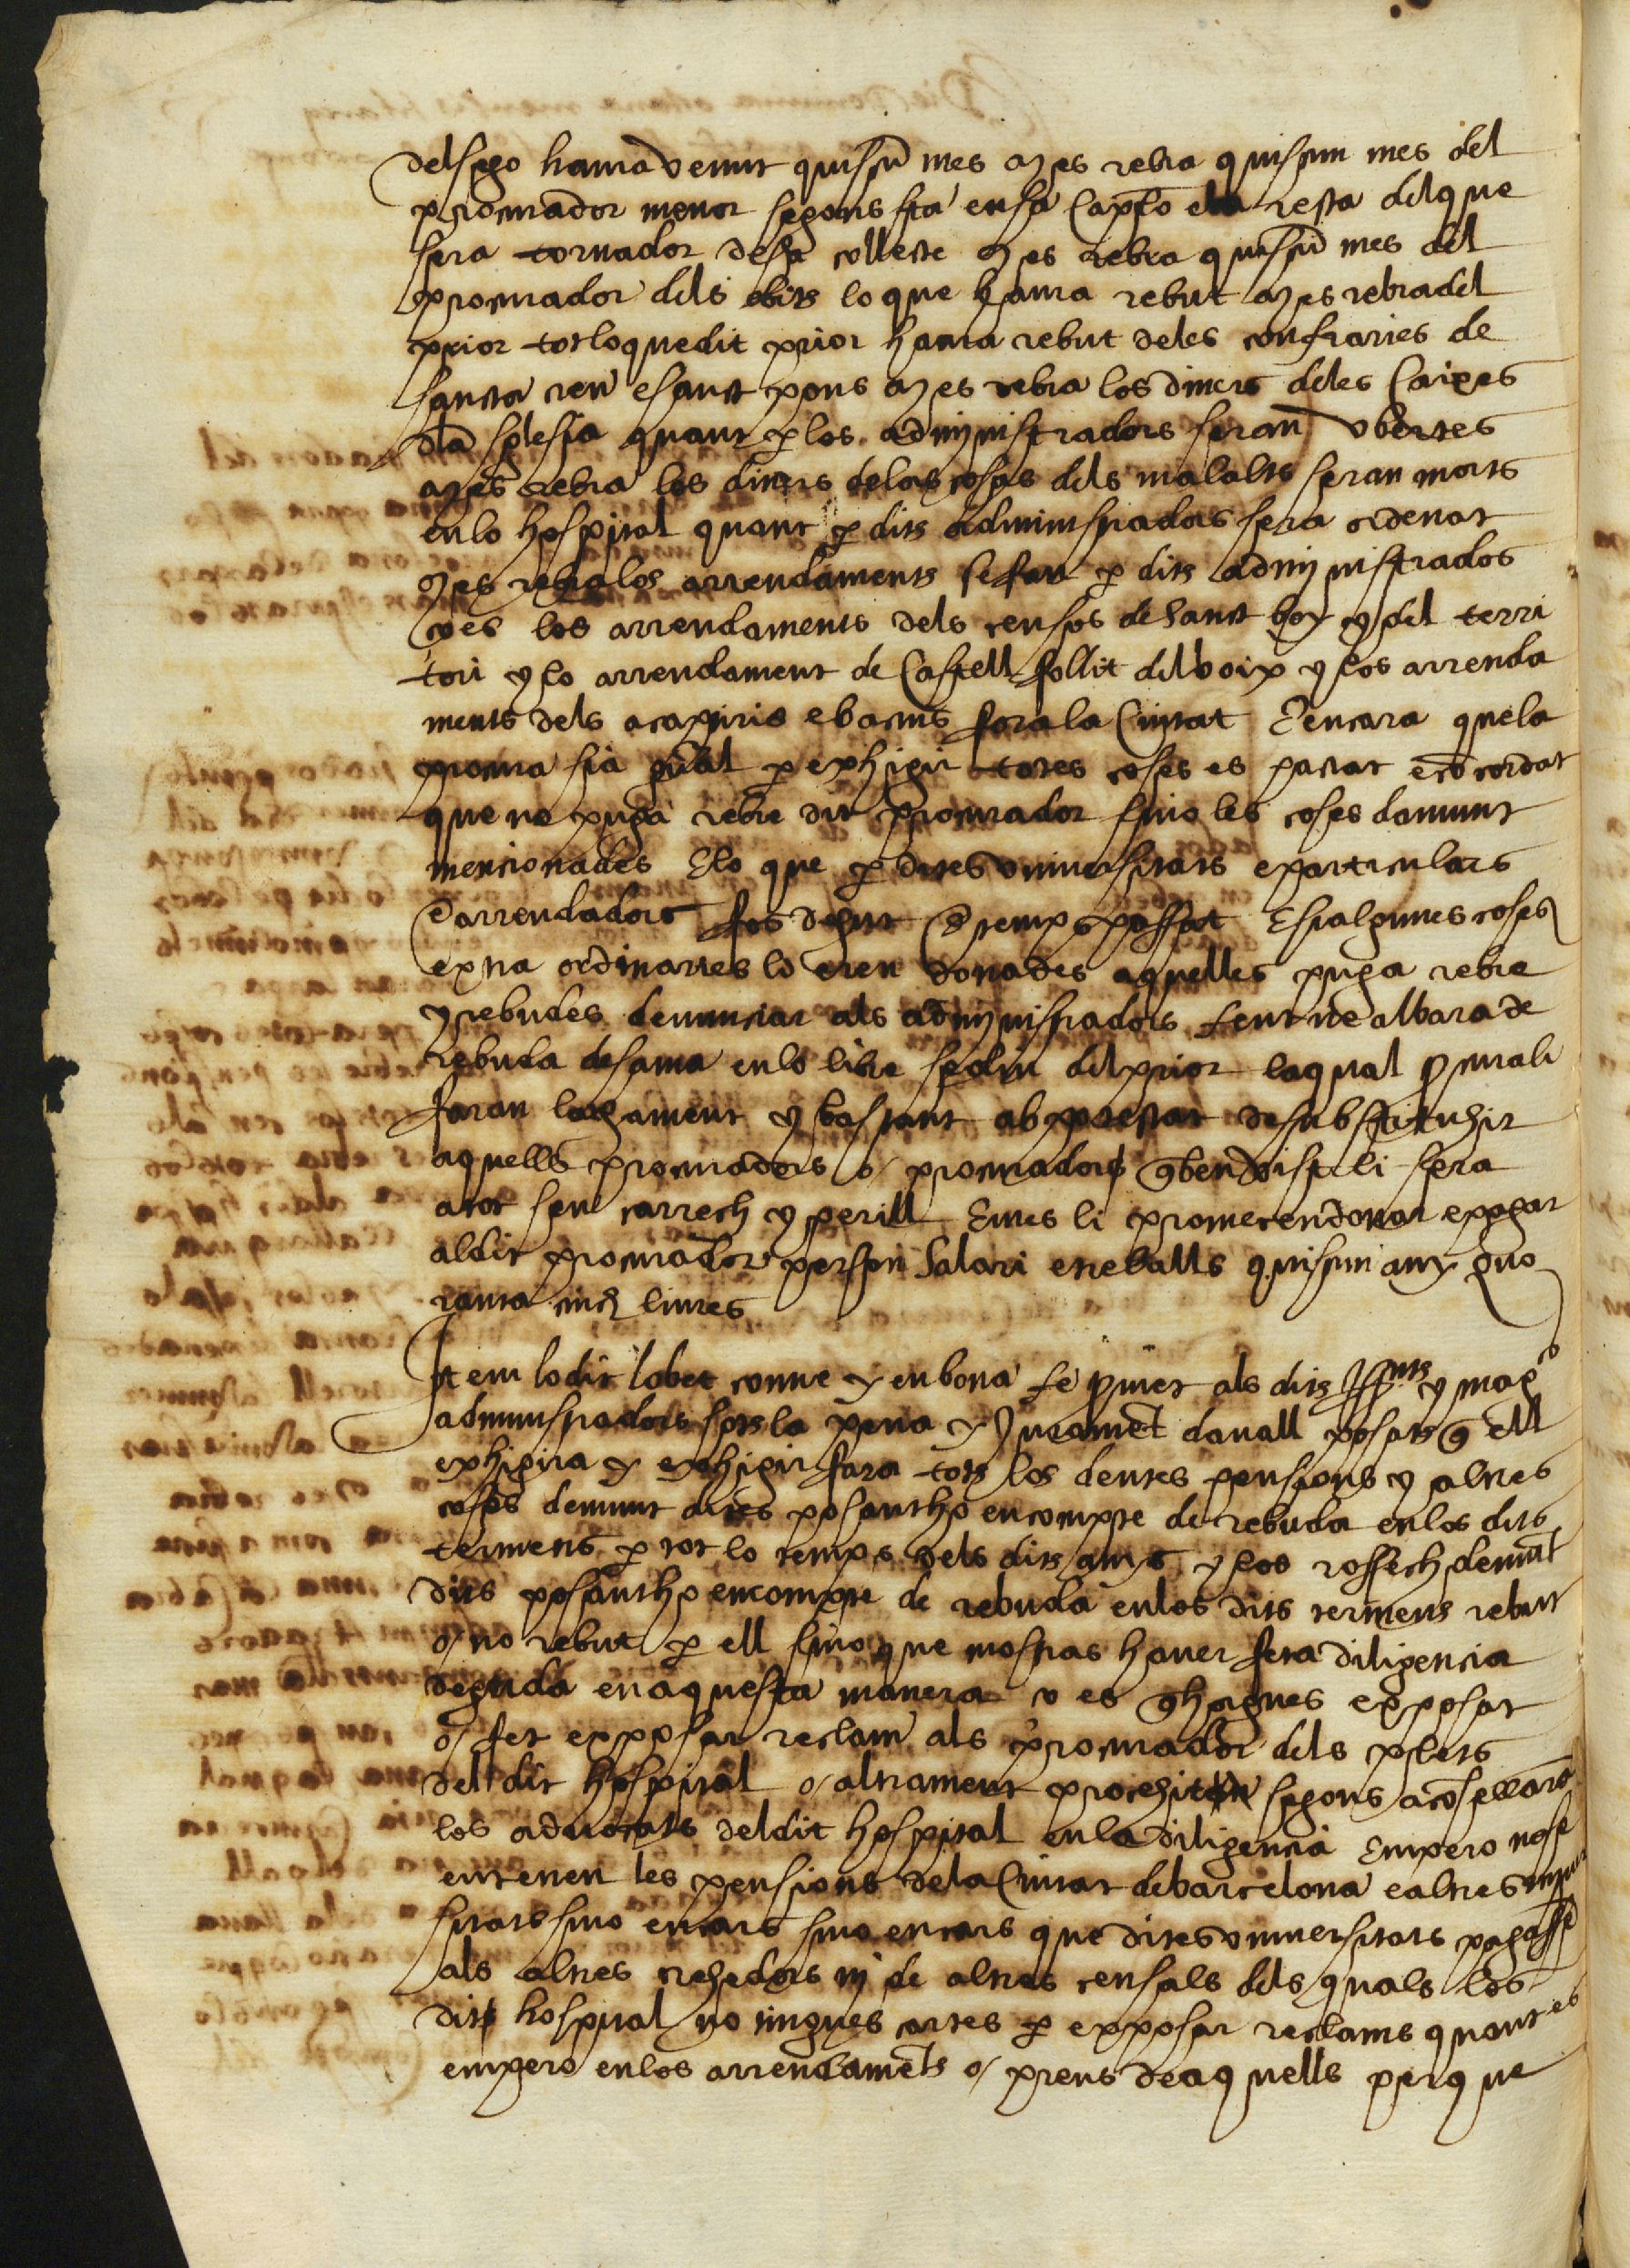 del sego haura venut quiscu mes mes rebra quiscun mes del
procurador menor segons sta en sa capto e la resta del que
sera tornador de sa collecte mes rebra quiscu mes del
procurador dels obits lo que haura rebut mes rebra del
prior tot lo que dit prior haura rebut de les confraries de
sancta creu e sanct pons mes rebra los diners de les caixes
dla sglesia quant p los administradors seran vbertes
mes rebra los diners de las cosas dels malalts seran morts
en lo hospital quant p dits administradors sera ordenat
mes rebra los arrendaments se fan p dits administrados
ço es los arrendaments dels censos de sanct boy y del terri
tori y lo arrendament de Castell follit del boix y los arrenda
ments dels acapiris e bacins fora la Ciutat E encara que la
procura sia gnal p exhigir totes coses es pactat e cocordat
que no puga rebre dit procurador sino les coses damunt
mencionades E lo que p dites vniuersitats e particulars
e arrendadors fos degut del temps passat E si algunes coses
extra ordinaries lo eren donades aquelles puga rebre
y rebudes denunciar als administradors fent ne albara de
rebuda de sa ma en lo libre del prior la qual pcura li
faran largament y bastant ab potestat de substituhir
aquells procuradors o procuradors q ben vist li sera
a tot seu carrech y perill E mes li prometen donar e pagar
al dit procurador per son salari e treballs quiscun any quo
ranta cinch liures
Item lo dit lobet conue y en bona fe pmet als dits y mag
administradors sots la pena y jurament dauall posats q ell
exhigira y exhigir fara tots los deutes pensions y altres
coses demunt dites posantho en compte de rebuda en los dits
termens p tot lo temps dels dits anys y los rossech demut
dits posantho en compte de rebuda en los dits termens rebut
o no rebut p ell sino que mostras hauer feta diligencia
deguda en aquesta manera ço es q hagues exposat
o fet exposar reclam als procurador dels plets
del dit hospital o altrament prochit segons acosellaro
los aduocats del dit hospital en la diligencia Empero no se
entenen les pensions de la Ciutat de barcelona e altres vniuer
sitats sino en cars sino en cars que dites vniuersitats pagasse
als altres crehedors ni de altres censals dels quals los
dits hospital no tingues cartes p exposar reclams quant es
empero en los arrendamets o prens de aquells perque